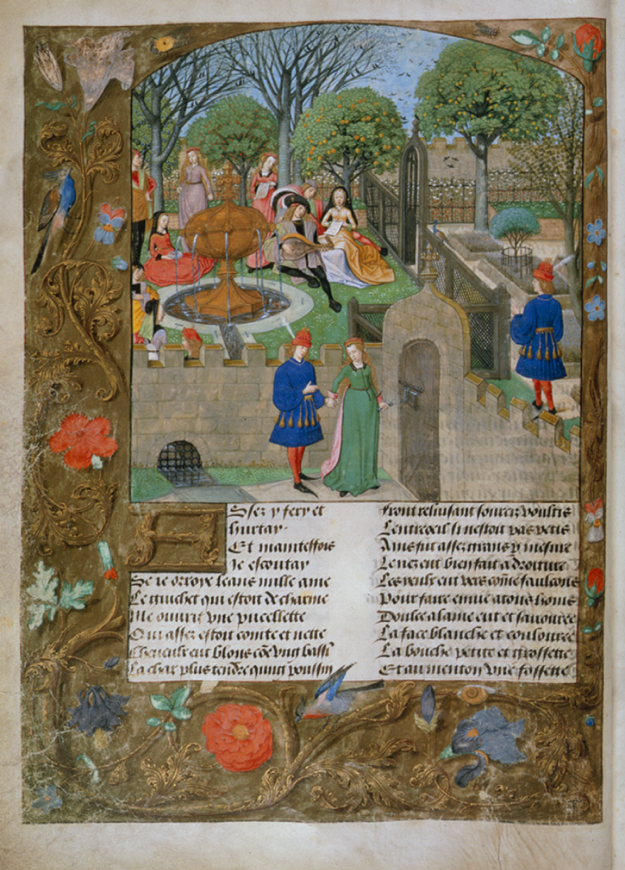 Assez y fery et
hurtay.
Et maintesfois
Je escoutay
Se ie orroye leans nulle ame
Le guichet qui estoit de charme
Me ouurit vne pucellette
Qui assez estoit cointe et nette
Cheueulx eut blons cõe vng bassĩ
La char plus tendre qung poussin
Front reluisant sourcilz voultis
Lentreoeil si nestoit pas petis
Ains fut assez grans p mesure
Le nez eut bien fait a droiture
Les yeulx eut vers cõme faulcons
Pour faire enuie a tous homs
Doulce alaine eut et sauouree
La face blanche et coulouree
La bouche petite et grossette
Et au menton vne fossette